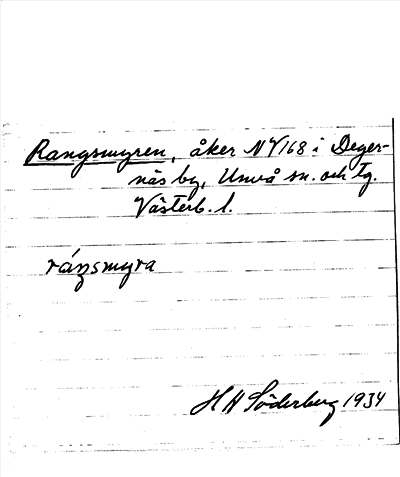 Rangsmyren, åker NV168 i Deger-
näs by, Umeå sn. och tg.
Västerb. l.
ráŋsmyra
H H Söderberg 1934